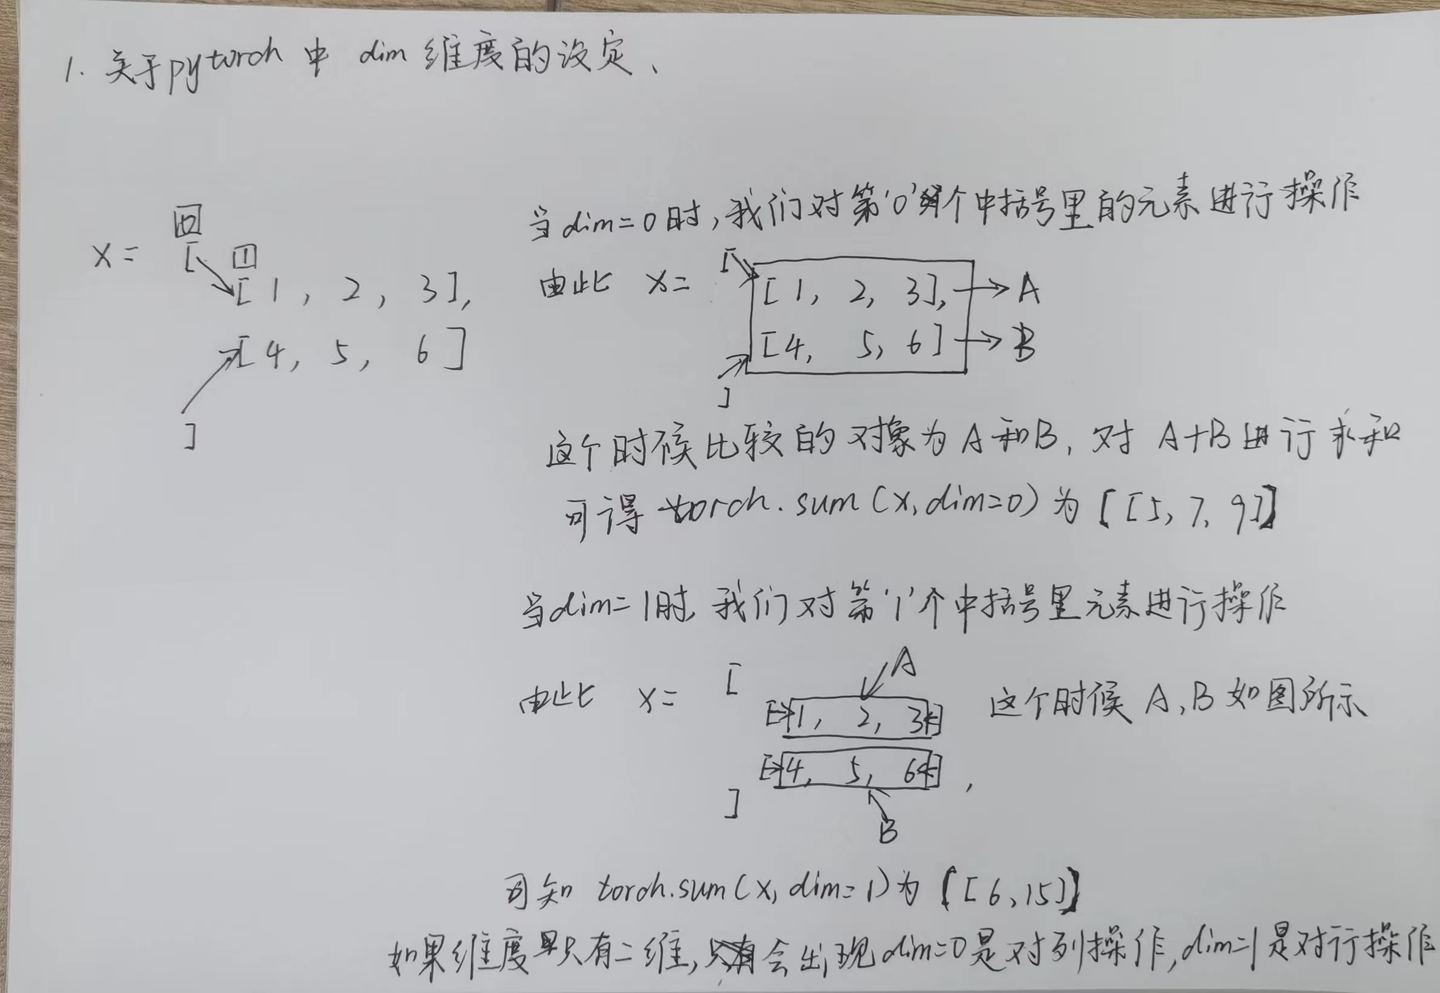 1. 关于pytorch 中 dim 维度的设定、
当dim=0时，我们对第'0'个中括号里的元素进行操作
x= 0
[ 1
[1, 2, 3],
[4, 5, 6]
]
由此 x= [
[1, 2, 3], → A
[4, 5, 6] → B
]
这个时候比较的对象为A和B，对 A+B进行求和
可得 torch.sum(x,dim=0)为[[5,7,9]]
当dim=1时 我们对第'1'个中括号里元素进行操作
由此 x= [ A
[1, 2, 3] 这个时候 A,B如图所示
[4, 5, 6] ,
] B
可知 torch.sum(x,dim=1)为[[6,15]]
如果维度只有二维，会出现dim=0是对列操作,dim=1是对行操作